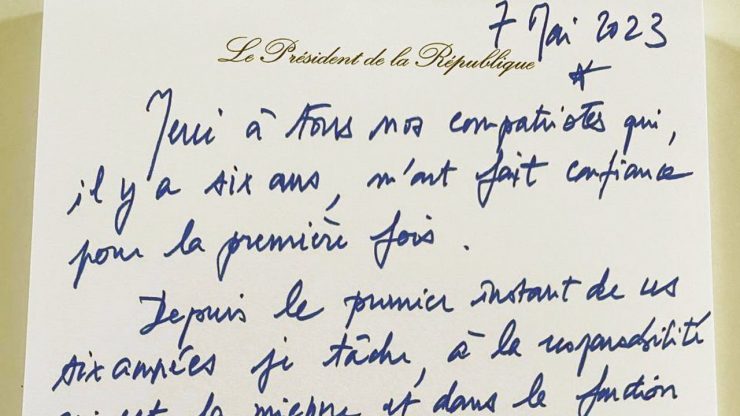 7 Mai 2023
Le Président de la République
Merci à tous nos compatriotes qui,
il y a six ans, m'ont fait confiance
pour la première fois.
Depuis le premier instant de ces
six années je tâche, à la responsabilité
qui est la mienne et dans la fonction